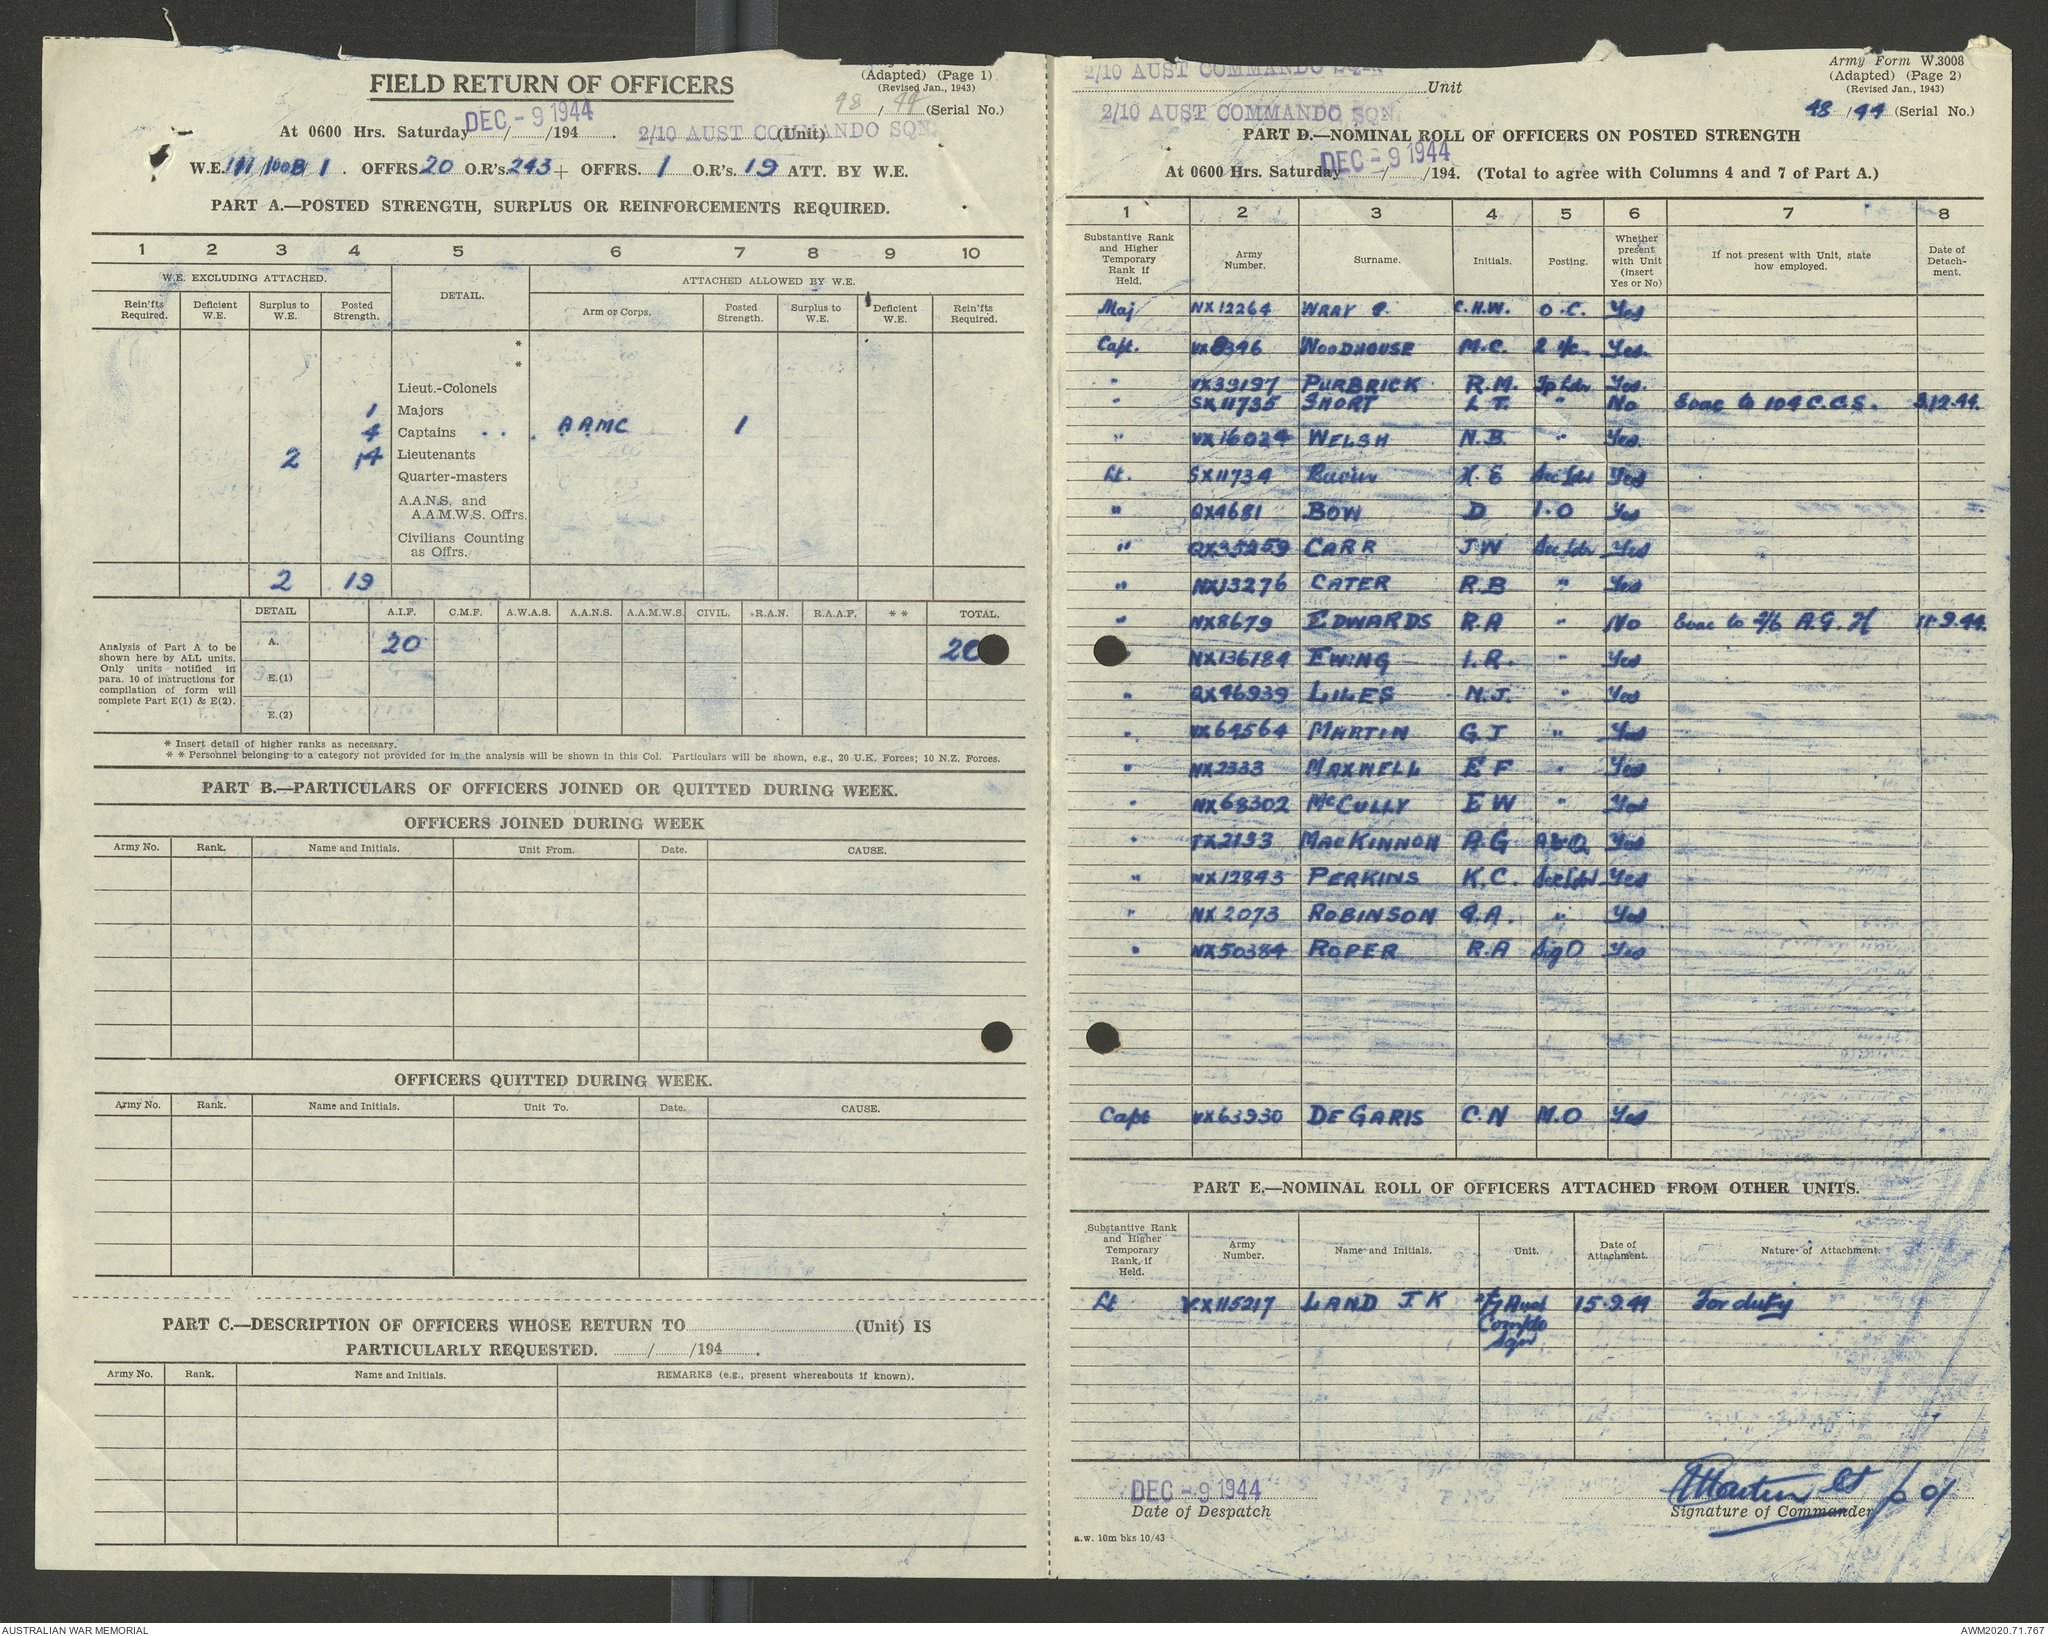 Army Form
FIELD RETURN OF OFFICERS
(Adapted) (Page 1)
(Revised Jan., 1943)
48 / 44 (Serial No.)
At 0600 Hrs. Saturday DEC - 9 1944 / /194 . 2/10 AUST COMMANDO SQN. (Unit)
W.E. 111 /1008/ 1 . OFFRS 20 O.R's. 243 + OFFRS. 1 O.R's. 19 ATT. BY W.E.
PART A.—POSTED STRENGTH, SURPLUS OR REINFORCEMENTS REQUIRED.
1 2 3 4 5 6 7 8 9 10
W.E. EXCLUDING ATTACHED. DETAIL. ATTACHED ALLOWED BY W.E.
Rein'fts Required. Deficient W.E. Surplus to W.E. Posted Strength. Arm or Corps. Posted Strength. Surplus to W.E. Deficient W.E. Rein'fts Required.
*
*
Lieut.-Colonels
1 Majors
4 Captains . . . AAMC 1
2 14 Lieutenants
Quarter-masters
A.A.N.S. and A.A.M.W.S. Offrs.
Civilians Counting as Offrs.
2 19
Analysis of Part A to be shown here by ALL units. Only units notified in para. 10 of instructions for compilation of form will complete Part E(1) & E(2).
DETAIL A.I.F. C.M.F. A.W.A.S. A.A.N.S. A.A.M.W.S. CIVIL. R.A.N. R.A.A.F. * * TOTAL.
A. 20 20
E.(1)
E.(2)
* Insert detail of higher ranks as necessary.
* * Personnel belonging to a category not provided for in the analysis will be shown in this Col. Particulars will be shown, e.g., 20 U.K. Forces; 10 N.Z. Forces.
PART B.—PARTICULARS OF OFFICERS JOINED OR QUITTED DURING WEEK.
OFFICERS JOINED DURING WEEK
Army No. Rank. Name and Initials. Unit From. Date. CAUSE.
OFFICERS QUITTED DURING WEEK.
Army No. Rank. Name and Initials. Unit To. Date. CAUSE.
PART C.—DESCRIPTION OF OFFICERS WHOSE RETURN TO (Unit) IS
PARTICULARLY REQUESTED. / /194 .
Army No. Rank. Name and Initials. REMARKS (e.g., present whereabouts if known).
2/10 AUST COMMANDO SQN. Unit
Army Form W.3008
(Adapted) (Page 2)
(Revised Jan., 1943)
2/10 AUST COMMANDO SQN.
48 / 44 (Serial No.)
PART D.—NOMINAL ROLL OF OFFICERS ON POSTED STRENGTH
At 0600 Hrs. Saturday DEC - 9 1944 / /194. (Total to agree with Columns 4 and 7 of Part A.)
1 2 3 4 5 6 7 8
Substantive Rank and Higher Temporary Rank if Held. Army Number. Surname. Initials. Posting. Whether present with Unit (insert Yes or No) If not present with Unit, state how employed. Date of Detach-ment.
Maj NX12264 WRAY C.H.W. O.C. Yes
Capt. VX8346 WOODHOUSE M.C. 2 i/c. Yes.
" VX39197 PURBRICK R.M. Tp Ldr Yes.
" SX11735 SHORT L T. " No Evac to 104 C.C.S. 3.12.44.
" VX16024 WELSH N.B. " Yes.
Lt. SX11734 H. E Sec Ldr Yes
" QX4681 BOW D I.O Yes
" QX35259 CARR J W Sec Ldr Yes
" NX13276 CATER R.B " Yes
" NX8679 EDWARDS R.A " No Evac to 2/6 A.G.H 11.9.44.
NX136184 EWING I.R. " Yes
" QX46939 LILES N.J. " Yes
" VX64564 MARTIN G.J " Yes
" NX2333 MAXWELL E F " Yes
" NX68302 McCULLY E W " Yes
" TX2193 MacKINNON A.G A&Q Yes
" NX12843 PERKINS K.C. Sec Ldr Yes
" NX2073 ROBINSON G.A. " Yes
" NX50384 ROPER R.A Sig O Yes
Capt VX63930 DE GARIS C.N M.O Yes
PART E.—NOMINAL ROLL OF OFFICERS ATTACHED FROM OTHER UNITS.
Substantive Rank and Higher Temporary Rank, if Held. Army Number. Name and Initials. Unit. Date of Attachment. Nature of Attachment.
Lt VX115217 LAND J.K 2/7 Aust Comdo Sqn 15.9.44 For duty
DEC - 9 1944
Date of Despatch
GMartin Lt
Signature of Commander
a.w. 10m bks 10/43
AUSTRALIAN WAR MEMORIAL
AWM2020.71.767